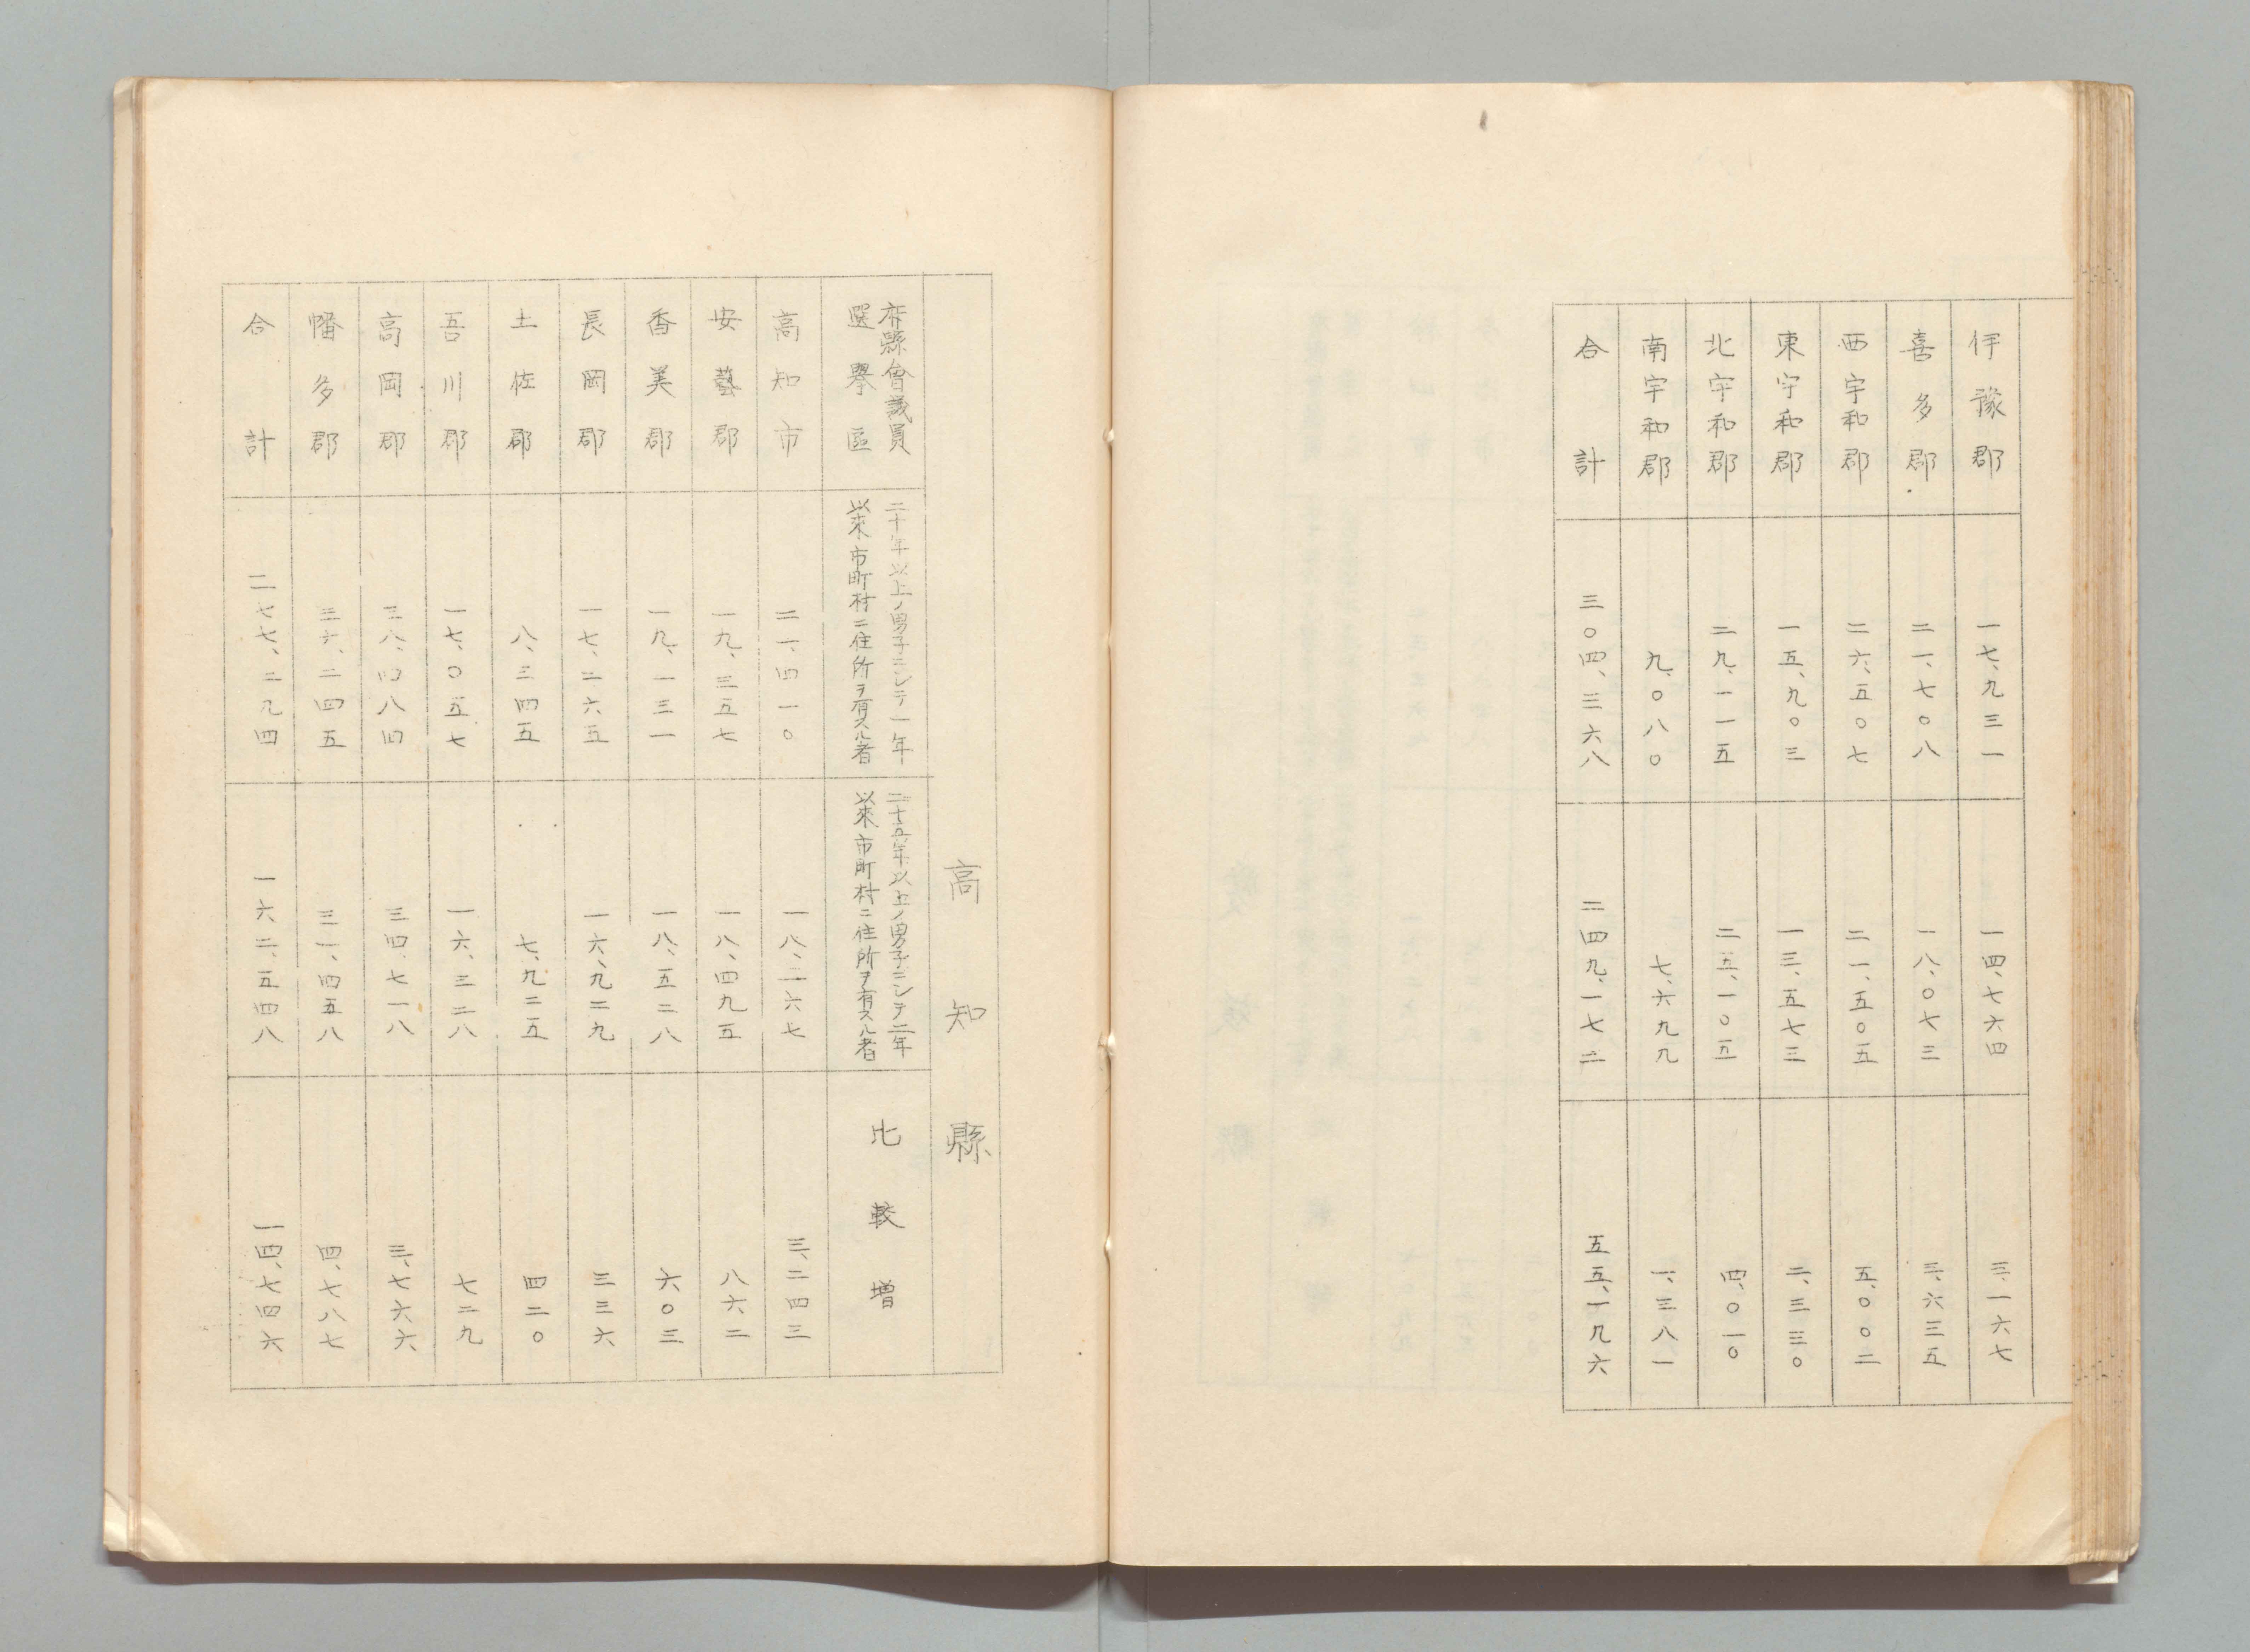 伊豫郡 一七、九三一 一四、七六四 三、一六七
喜多郡 二一、七〇八 一八、〇七三 三、六三五
西宇和郡 二六、五〇七 二一、五〇五 五、〇〇二
東宇和郡 一五、九〇三 一三、五七三 二、三三〇
北宇和郡 二九、一一五 二五、一〇五 四、〇一〇
南宇和郡 九、〇八〇 七、六九九 一、三八一
合計 三〇四、三六八 二四九、一七二 五五、一九六
高知縣
府縣會議員
選擧區
二十年以上ノ男子ニシテ一年
以來市町村ニ住所ヲ有スル者
二十五年以上ノ男子ニシテ二年
以來市町村ニ住所ヲ有スル者
比較増
高知市 二一、四一〇 一八、一六七 三、二四三
安藝郡 一九、三五七 一八、四九五 八六二
香美郡 一九、一三一 一八、五二八 六〇三
長岡郡 一七、二六五 一六、九二九 三三六
土佐郡 八、三四五 七、九二五 四二〇
吾川郡 一七、〇五七 一六、三二八 七二九
高岡郡 三八、四八四 三四、七一八 三、七六六
幡多郡 三六、二四五 三一、四五八 四、七八七
合計 二七七、二九四 一六二、五四八 一四、七四六